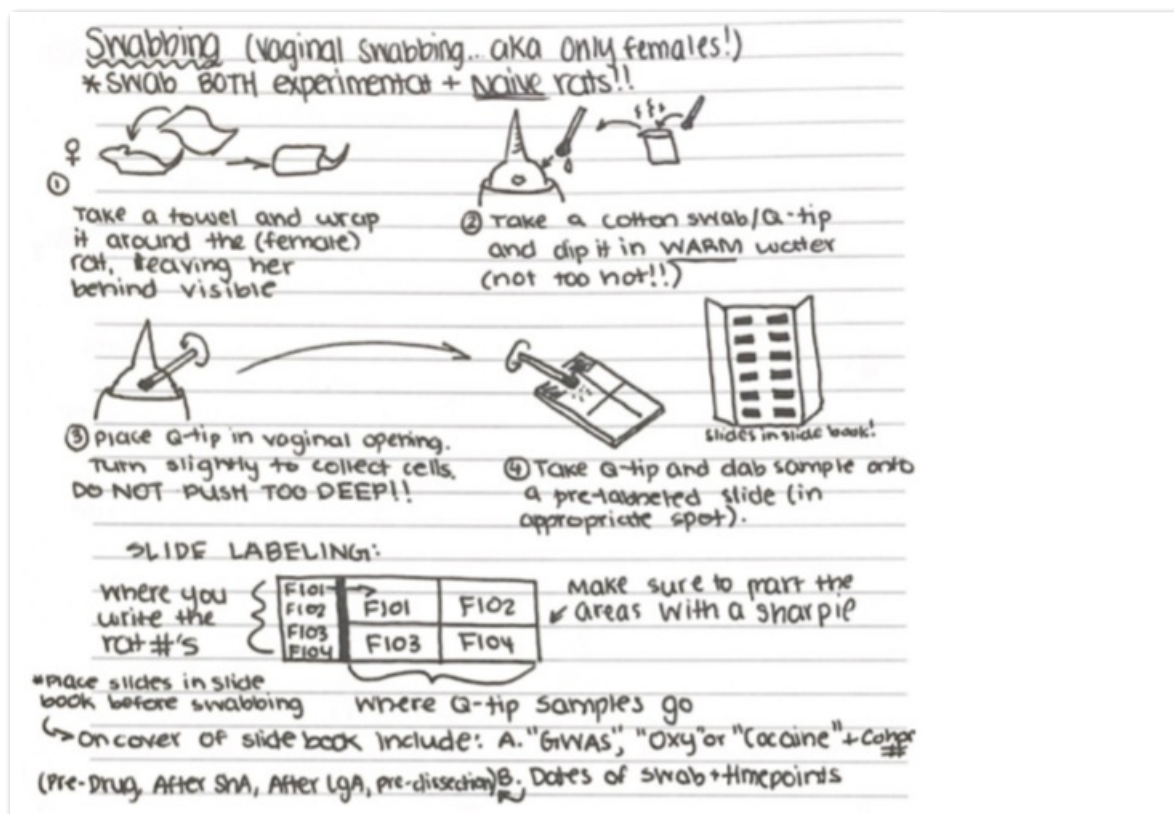 Swabbing (vaginal swabbing.. aka only females!)
*SWAB BOTH experimental + Naive rats!!
♀
① Take a towel and wrap
it around the (female)
rat, leaving her
behind visible
② Take a cotton swab/Q-tip
and dip it in WARM water
(not too hot!!)
③ Place Q-tip in vaginal opening.
Turn slightly to collect cells.
DO NOT PUSH TOO DEEP!!
slides in slide book!
④ Take Q-tip and dab sample onto
a pre-labneled slide (in
appropriate spot).
SLIDE LABELING:
Where you
write the
rat #'s
F101
F102
F103
F104
F101 F102
F103 F104
Make sure to mart the
areas with a sharpie
*Place slides in slide
book before swabbing
where Q-tip samples go
On cover of slide book include: A. "GWAS", "Oxy" or "Cocaine" + Cohor
#
(Pre-Drug, After ShA, After LgA, pre-dissection) B. Dates of swab + timepoints